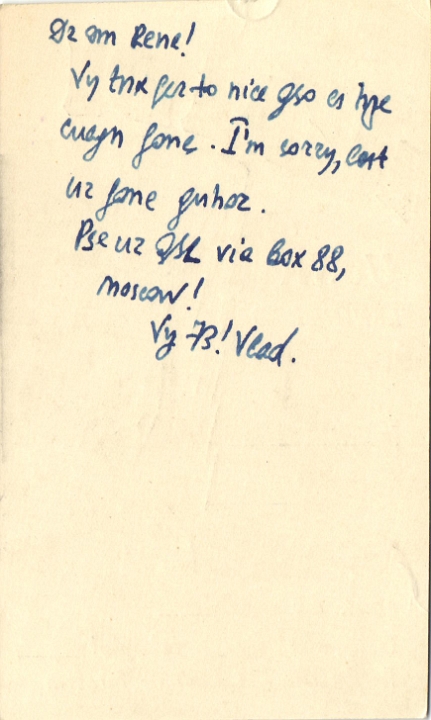 Dr om Rene!
Vy tnx fer to nice qso es hpe
cuagn fone. I'm sorry, lost
ur fone
Pse ur QSL via Box 88,
Moscow!
Vy 73! Vlad.